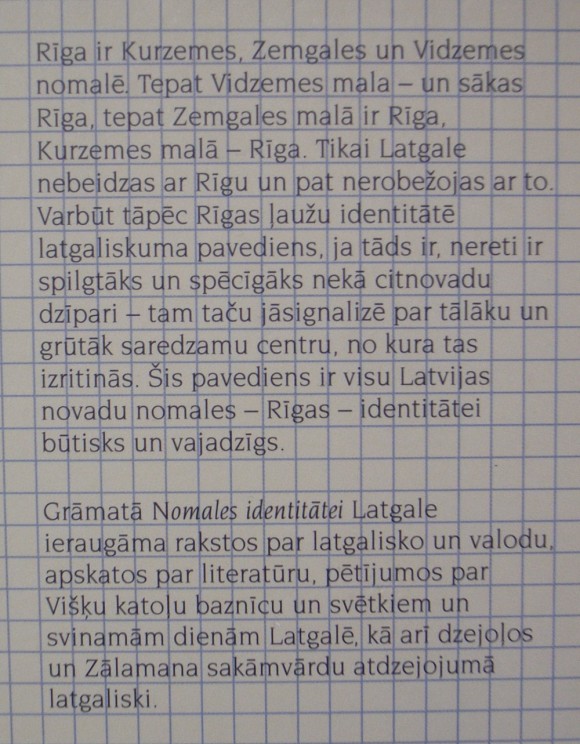 Rīga ir Kurzemes, Zemgales un Vidzemes
nomalē. Tepat Vidzemes mala – un sākas
Rīga, tepat Zemgales malā ir Rīga,
Kurzemes malā – Rīga. Tikai Latgale
nebeidzas ar Rīgu un pat nerobežojas ar to.
Varbūt tāpēc Rīgas ļaužu identitātē
latgaliskuma pavediens, ja tāds ir, nereti ir
spilgtāks un spēcīgāks nekā citnovadu
dzīpari – tam taču jāsignalizē par tālāku un
grūtāk saredzamu centru, no kura tas
izritinās. Šis pavediens ir visu Latvijas
novadu nomales – Rīgas – identitātei
būtisks un vajadzīgs.
Grāmatā Nomales identitātei Latgale
ieraugāma rakstos par latgalisko un valodu,
apskatos par literatūru, pētījumos par
Višķu katoļu baznīcu un svētkiem un
svinamām dienām Latgalē, kā arī dzejoļos
un Zālamana sakāmvārdu atdzejojumā
latgaliski.